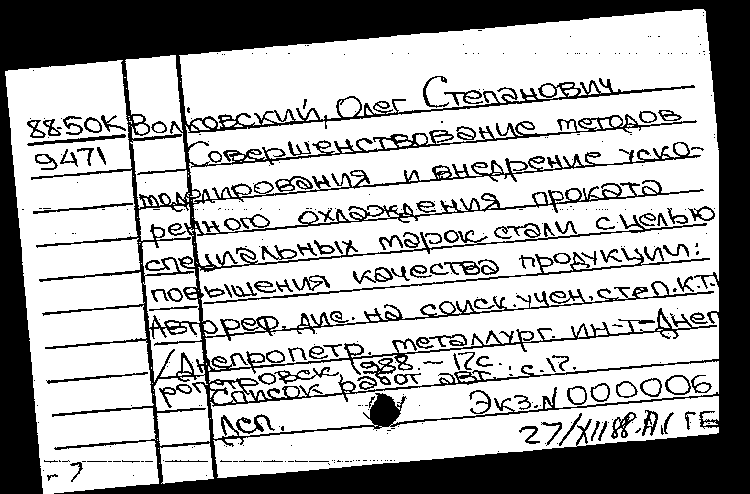 88-50К Волковский, Олег Степанович.
9471 Совершенствование методов
моделирования и внедрение уско-
ренного охлаждения проката
специальных марок стали с целью
повышения качества продукции:
Автореф. дис. на соиск. учен. степ. к.т.н
/Днепропетр. металлург. ин-т.-Днеп
ропетровск, 1988.- 17с.
Список работ авт.: с.17.
Экз.N 000006.
Дсп.
27/XII88.